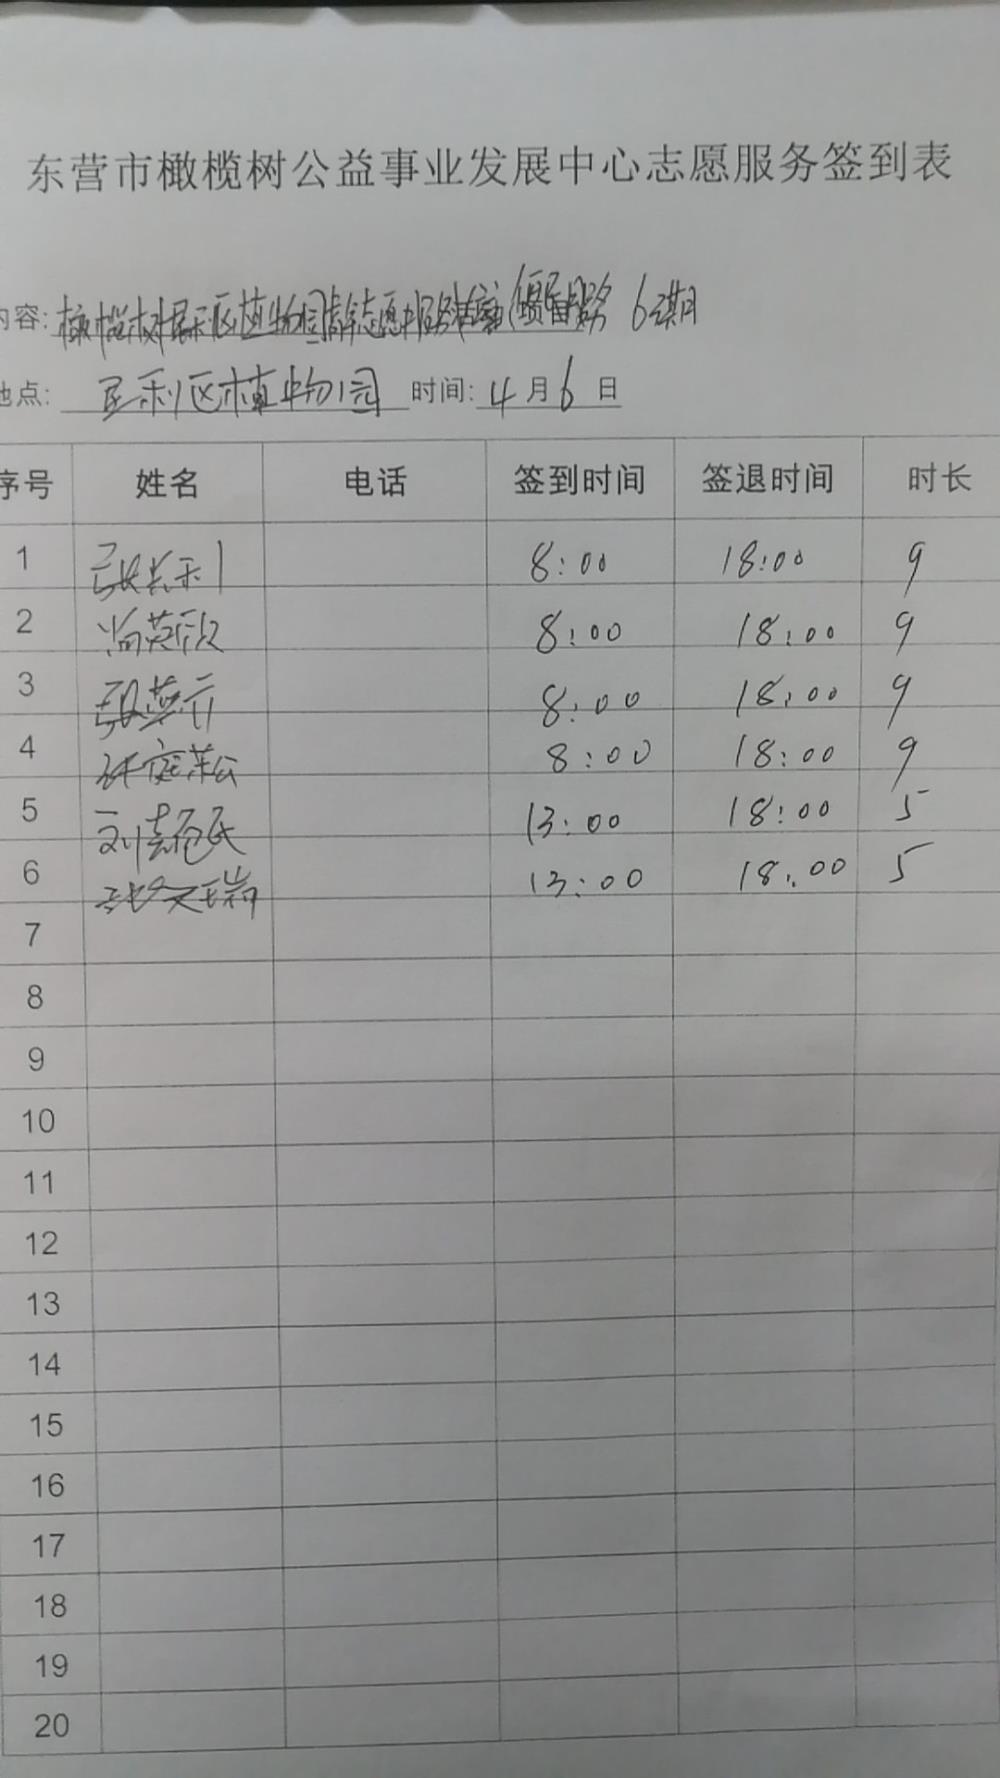 东营市橄榄树公益事业发展中心志愿服务签到表
内容: 橄榄树垦利区植物园 志愿服务 6期
地点: 垦利区植物园 时间: 4月6日
序号 姓名 电话 签到时间 签退时间 时长
1 张长利 8:00 18:00 9
2 尚英段 8:00 18:00 9
3 8:00 18:00 9
4 8:00 18:00 9
5 13:00 18:00 5
6 13:00 18:00 5
7
8
9
10
11
12
13
14
15
16
17
18
19
20